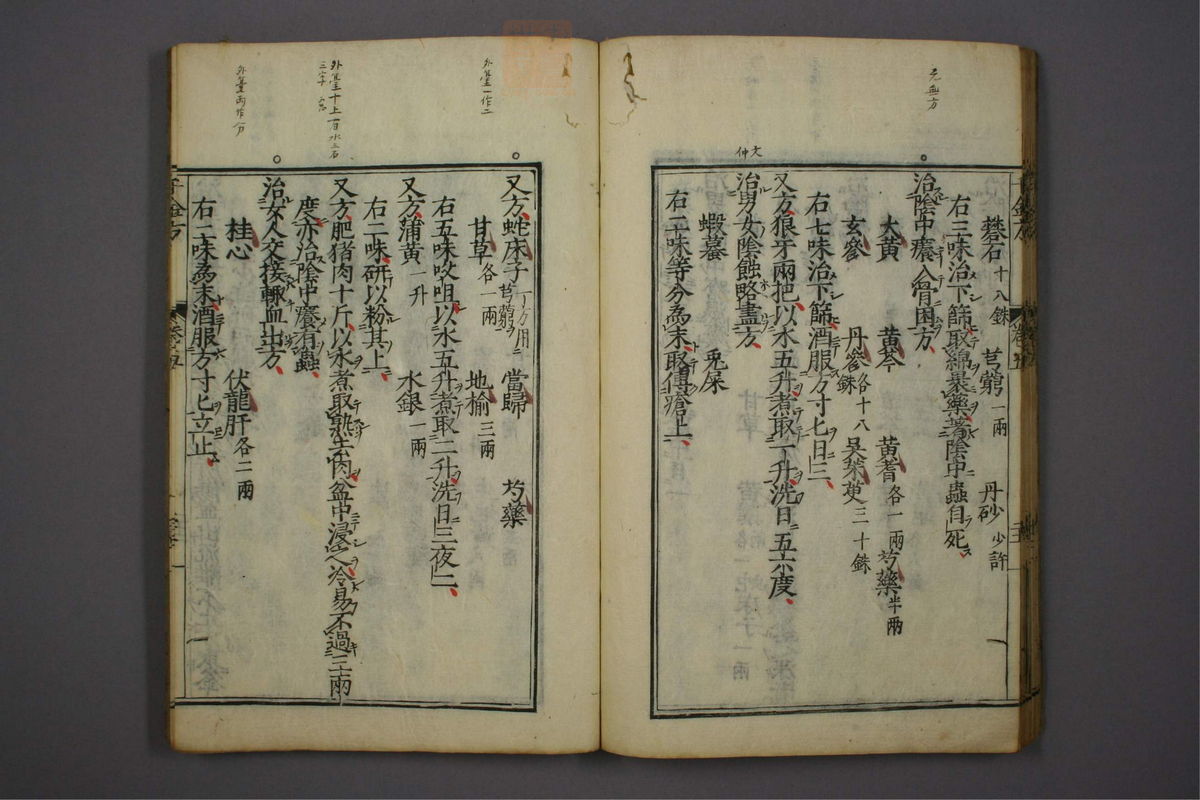 无無方
礬石十八銖 芎藭一兩 丹砂少許
右三味治下篩取綿裹藥著陰中蟲自死
治陰中癢入骨困方
大黃 黃芩 黃耆各一兩 芍藥半兩
玄參 丹參各十八銖 吳茱萸三十銖
右七味治下篩酒服方寸匕日三
又方狼牙兩把以水五升煮取一升洗日五六度
文仲
治男女陰蝕略盡方
蝦蟇 兎屎
右二味等分為末取傅瘡上
外臺一作二
又方蛇床子 當歸 芍藥
甘草各一兩 地榆三兩
右五味㕮咀以水五升煮取二升洗日三夜二
又方蒲黃一升 水銀一兩
右二味研以粉其上
外臺十上有水三石
三字
又方肥猪肉十斤以水煮取熟去肉盆中浸之冷易不過三兩
度亦治陰中癢有蟲
治女人交接輙血出方
外臺兩作分
桂心 伏龍肝各二兩
右二味為末酒服方寸匕立止
千金方 卷五